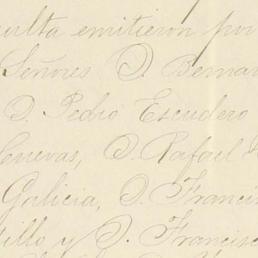 sulta emitieron por
Señores D. Bernar
D. Pedro Escudero
Cuevas, D. Rafael
Galicia, D. Francis
tillo y D. Francisc